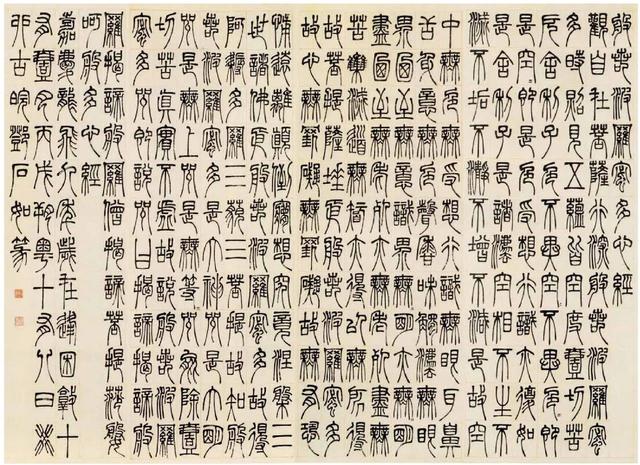 般若波羅蜜多心經
觀自在菩薩行深般若波羅蜜
多時照見五蘊皆空度一切苦
厄舍利子色不異空空不異色色即
是空空即是色受想行識亦復如
是舍利子是諸法空相不生不
滅不垢不淨不增不減是故空
中無色無受想行識無眼耳鼻
舌身意無色聲香味觸法無眼
界乃至無意識界無無明亦無無明
盡乃至無老死亦無老死盡無
苦集滅道無智亦無得以無所得
故菩提薩埵依般若波羅蜜多
故心無罣礙無罣礙故無有恐
怖遠離顛倒夢想究竟涅槃三
世諸佛依般若波羅蜜多故得
阿耨多羅三藐三菩提故知般
若波羅蜜多是大神咒是大明
咒是無上咒是無等等咒能除一
切苦真實不虛故說般若波羅
蜜多咒即說咒曰揭諦揭諦般
羅揭諦般羅僧揭諦菩提莎婆
呵般若多心經
嘉慶龍飛九年歲在逢困敦十
有一月丙戌朔粵十有八日癸
卯古皖鄧石如篆